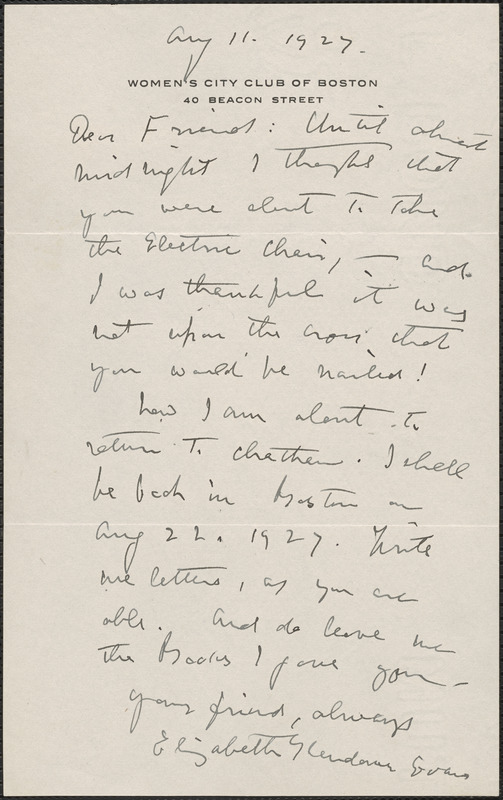 Aug 11. 1927.
WOMEN'S CITY CLUB OF BOSTON
40 BEACON STREET
Dear Friend: Until almost
midnight I thought that
you were about to take
the Electric Chair, — and
I was thankful it was
not upon the cross that
you would be nailed!
Now I am about to
return to Chatham. I shall
be back in Boston on
Aug 22. 1927. Write
me letters, as you are
able. And do leave me
the Books I gave you —
Your friend, always
Elizabeth Glendower Evans